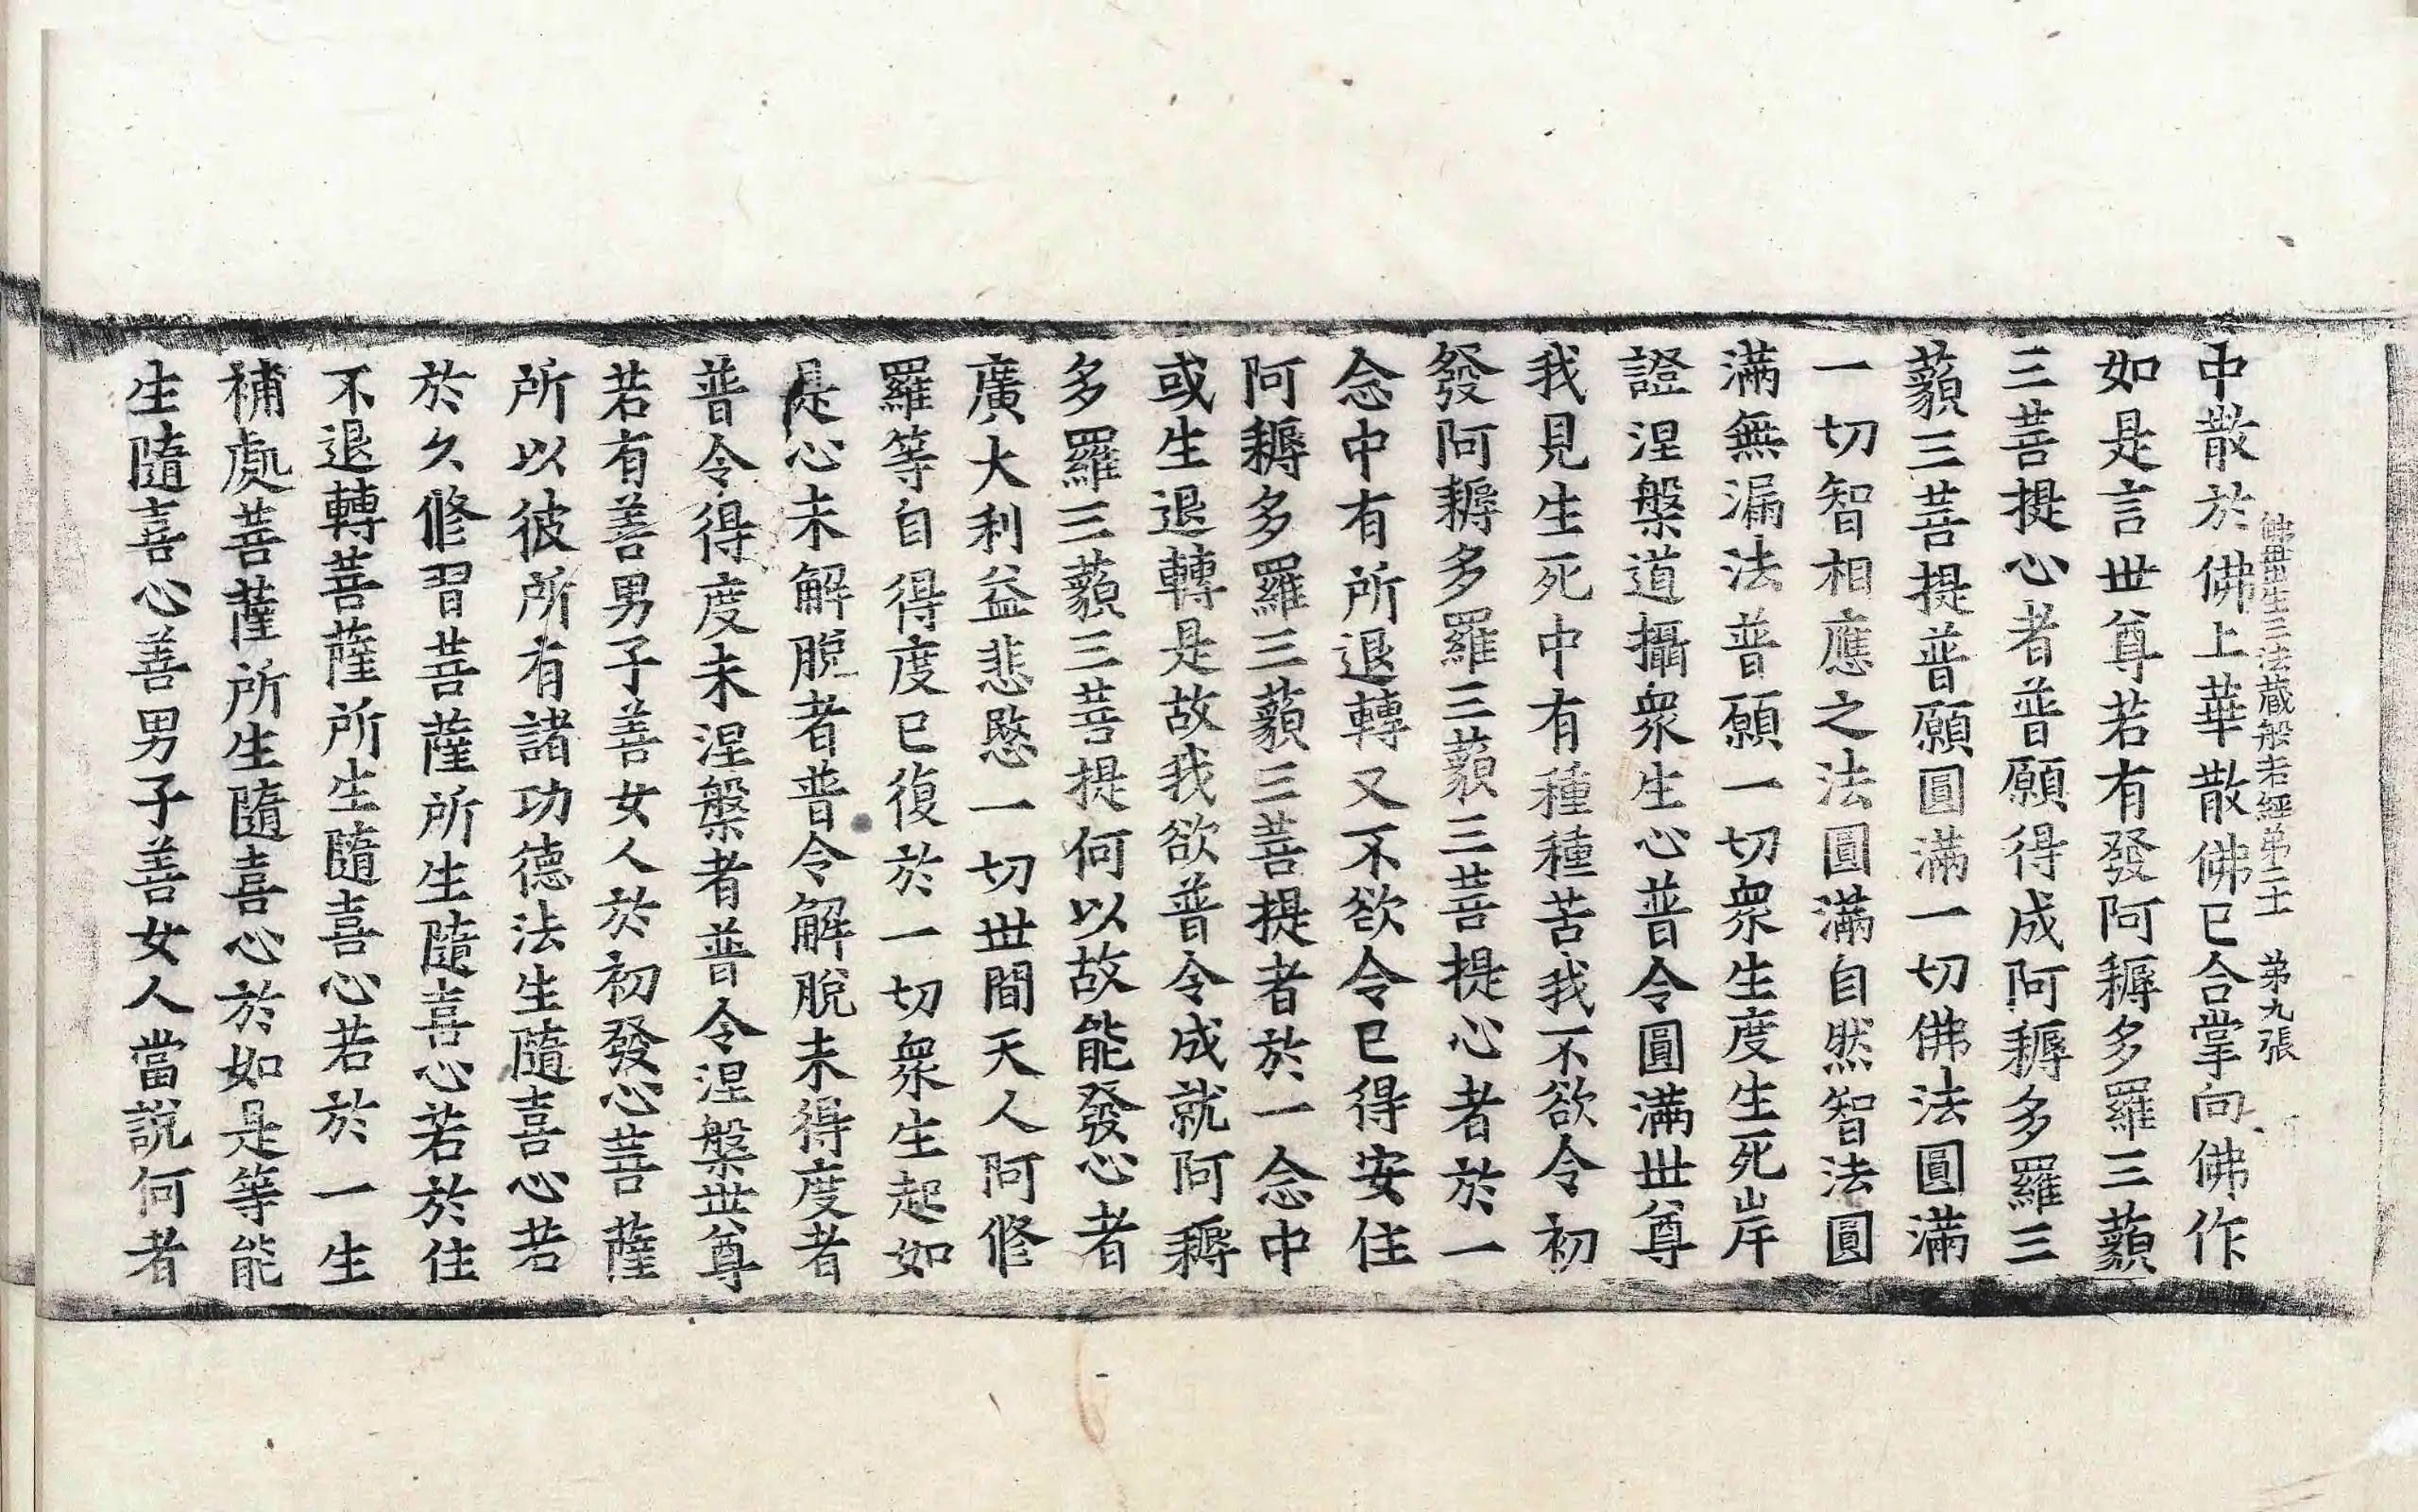 佛母出生三法藏般若經第二十 第九張
中散於佛上華散佛已合掌向佛作
如是言世尊若有發阿耨多羅三藐
三菩提心者普願得成阿耨多羅三
藐三菩提普願圓滿一切佛法圓滿
一切智相應之法圓滿自然智法圓
滿無漏法普願一切衆生度生死岸
證涅槃道攝衆生心普令圓滿世尊
我見生死中有種種苦我不欲令初
發阿耨多羅三藐三菩提心者於一
念中有所退轉又不欲令已得安住
阿耨多羅三藐三菩提者於一念中
或生退轉是故我欲普令成就阿耨
多羅三藐三菩提何以故能發心者
廣大利益悲愍一切世間天人阿修
羅等自得度已復於一切衆生起如
是心未解脫者普令解脫未得度者
普令得度未涅槃者普令涅槃世尊
若有善男子善女人於初發心菩薩
所以彼所有諸功德法生隨喜心若
於久修習菩薩所生隨喜心若於住
不退轉菩薩所生隨喜心若於一生
補處菩薩所生隨喜心於如是等能
生隨喜心善男子善女人當說何者